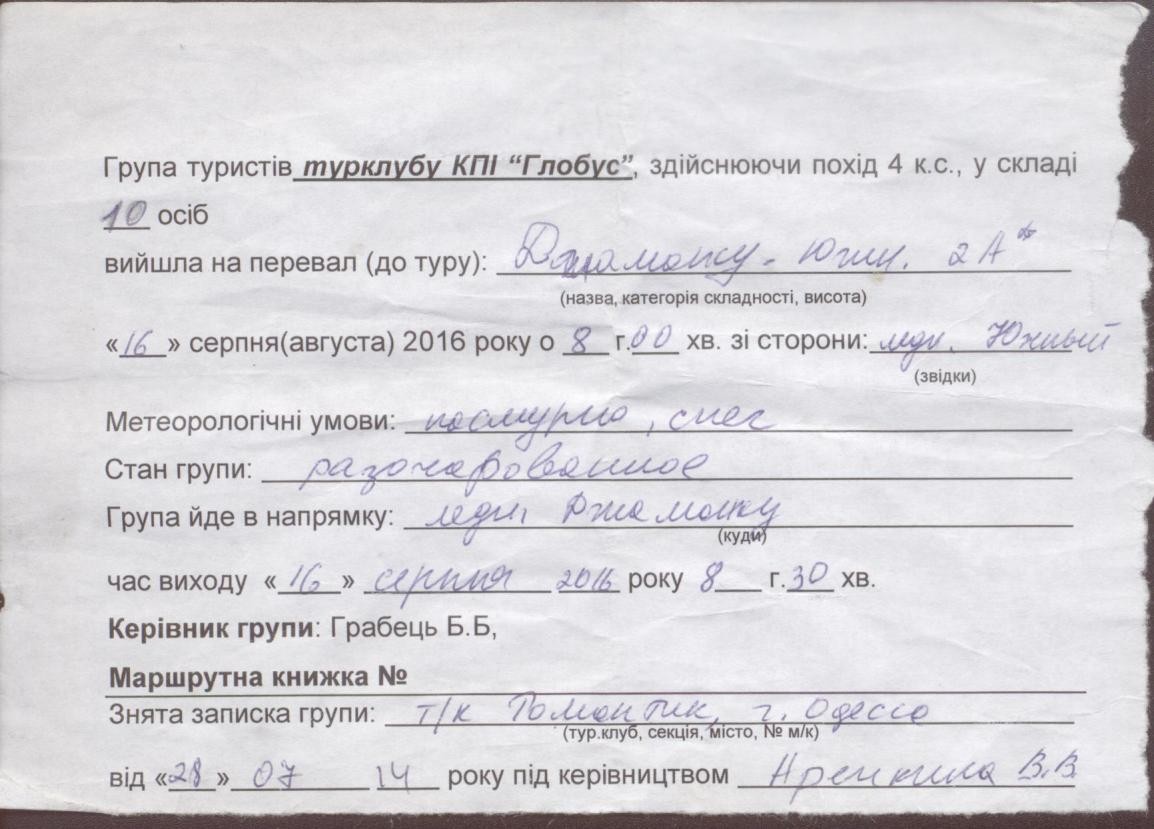 Група туристів турклубу КПІ “Глобус”, здійснюючи похід 4 к.с., у складі
10 осіб
вийшла на перевал (до туру): Джаманку - Южн. 2А*
(назва, категорія складності, висота)
«16» серпня(августа) 2016 року о 8 г.00 хв. зі сторони: ледн. Южный
(звідки)
Метеорологічні умови: пасмурно, снег
Стан групи: разочарованное
Група йде в напрямку: ледн Джаманку
(куди)
час виходу «16» серпня 2016 року 8 г.30 хв.
Керівник групи: Грабець Б.Б,
Маршрутна книжка №
Знята записка групи: т/к Романтик, г. Одесса
(тур.клуб, секція, місто, № м/к)
від «28» 07 14 року під керівництвом В.В.